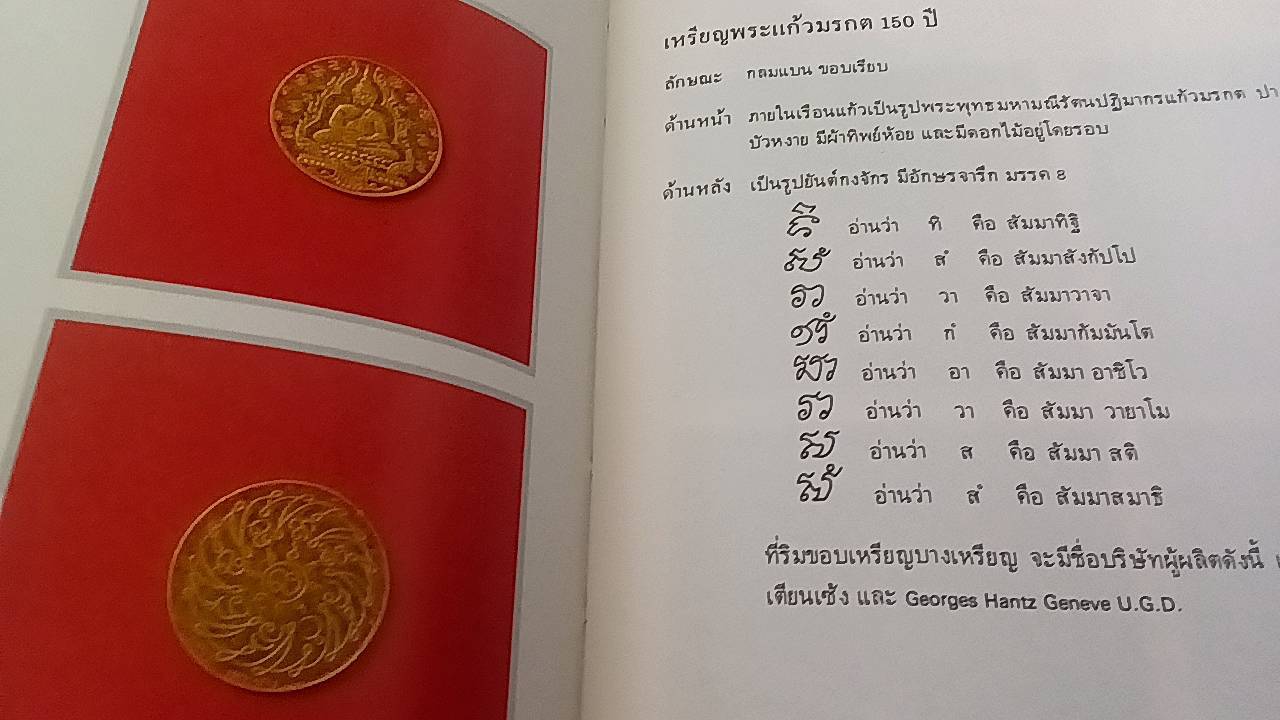 เหรียญพระแก้วมรกต 150 ปี
ลักษณะ กลมแบน ขอบเรียบ
ด้านหน้า ภายในเรือนแก้วเป็นรูปพระพุทธมหามณีรัตนปฏิมากรแก้วมรกต ปา
บัวหงาย มีผ้าทิพย์ห้อย และมีดอกไม้อยู่โดยรอบ
ด้านหลัง เป็นรูปยันต์กงจักร มีอักษรจารึก มรรค 8
อ่านว่า ทิ คือ สัมมาทิฐิ
อ่านว่า สํ คือ สัมมาสังกัปโป
อ่านว่า วา คือ สัมมาวาจา
อ่านว่า กํ คือ สัมมากัมมันโต
อ่านว่า อา คือ สัมมา อาชิโว
อ่านว่า วา คือ สัมมา วายาโม
อ่านว่า ส คือ สัมมา สติ
อ่านว่า สํ คือ สัมมาสมาธิ
ที่ริมขอบเหรียญบางเหรียญ จะมีชื่อบริษัทผู้ผลิตดังนี้
เตียนเซ้ง และ Georges Hantz Geneve U.G.D.